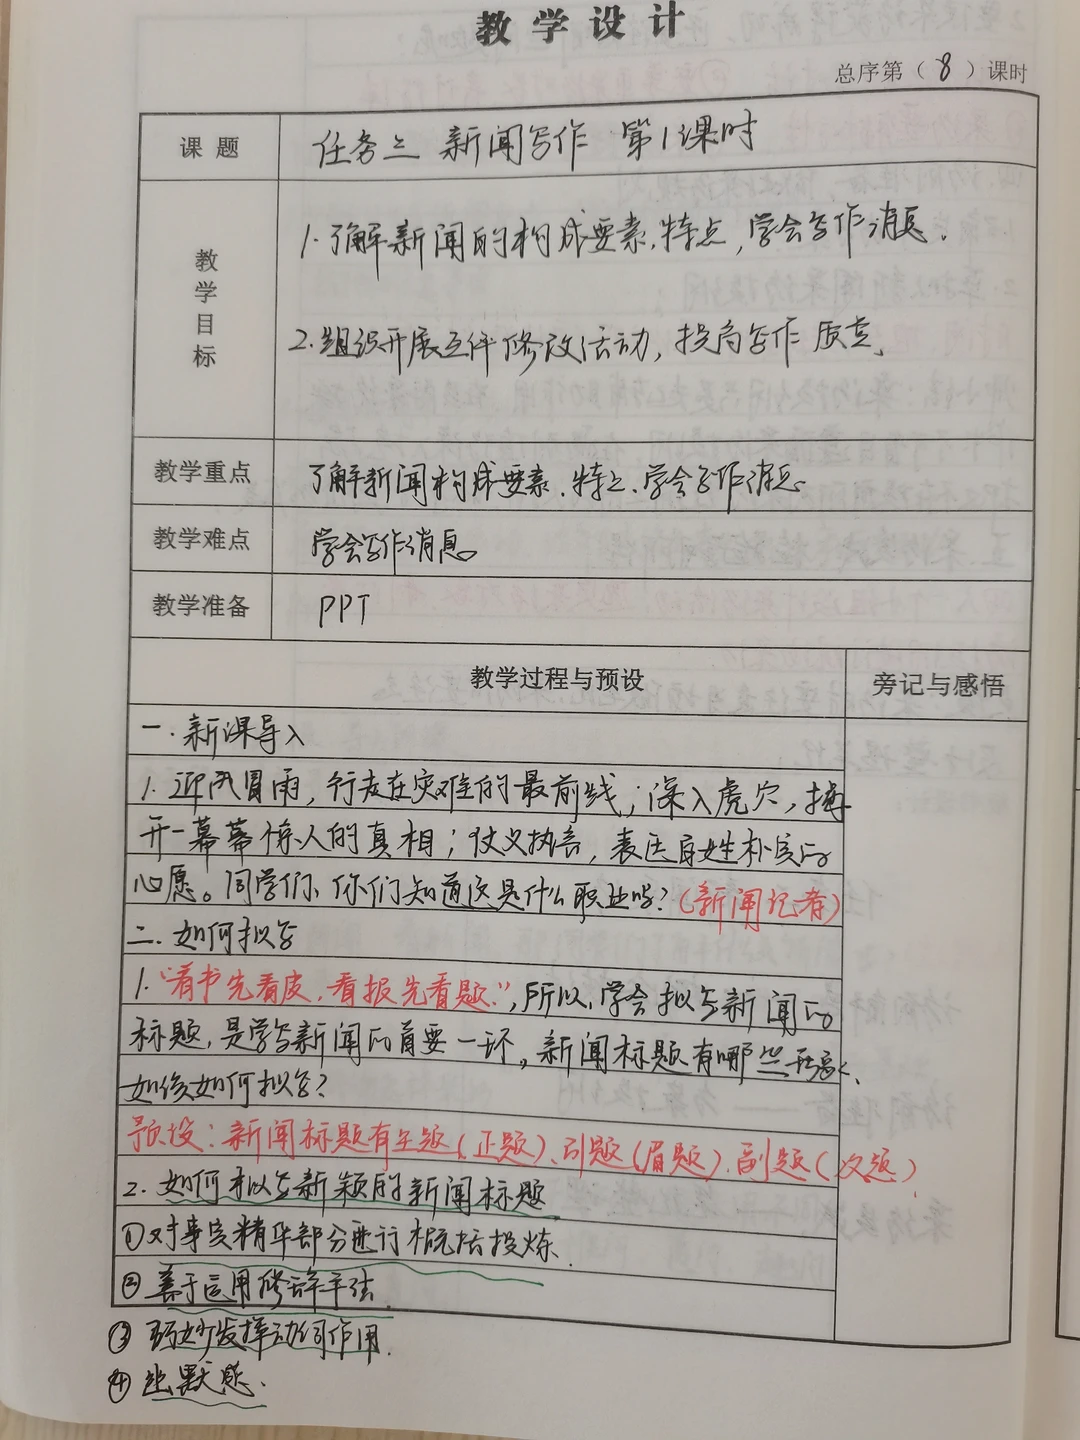 教学设计
总序第（8）课时
课题 任务三 新闻写作 第1课时
教学目标
1.了解新闻的构成要素、特点，学会写作消息.
2.组织开展互评修改活动，提高写作质量.
教学重点 了解新闻构成要素、特点、学会写作消息
教学难点 学会写作消息
教学准备 PPT
教学过程与预设 旁记与感悟
一.新课导入
1.迎风冒雨，行走在灾难的最前线；深入虎穴，揭
开一幕幕惊人的真相；仗义执言，表达百姓朴实的
心愿。同学们、你们知道这是什么职业吗？（新闻记者）
二.如何拟写
1.“看书先看皮，看报先看题.”，所以，学会拟写新闻的
标题，是学写新闻的首要一环。新闻标题有哪些形式、
如何拟写？
预设：新闻标题有主题（正题）、引题（眉题）、副题（次题）.
2.如何拟写新颖的新闻标题
①对事实精华部分进行概括提炼.
②善于运用修辞手法.
③巧妙发挥动词作用.
④幽默感.